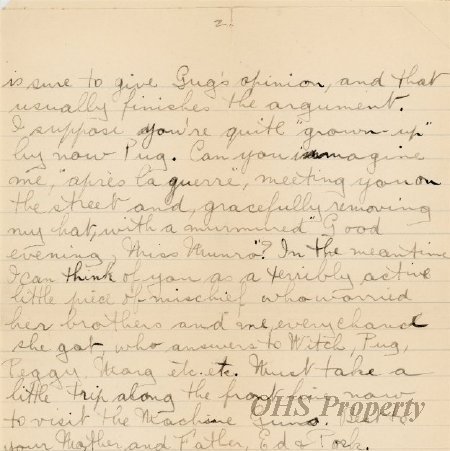 2.
is sure to give Pug's opinion, and that
usually finishes the argument.
I suppose you're quite "grown-up"
by now Pug. Can you imagine
me, "après la guerre", meeting you on
the street and, gracefully removing
my hat, with a murmured "Good
evening, Miss Munro"? In the meantime
I can think of you as a terribly active
little piece of mischief who worried
her brothers and me, every chance
she got, who answers to Witch, Pug,
Peggy, Marg etc. etc. Must take a
little trip along the front line now
to visit the Machine Guns. Best to
your Mother, and Father, Ed &
OHS Property